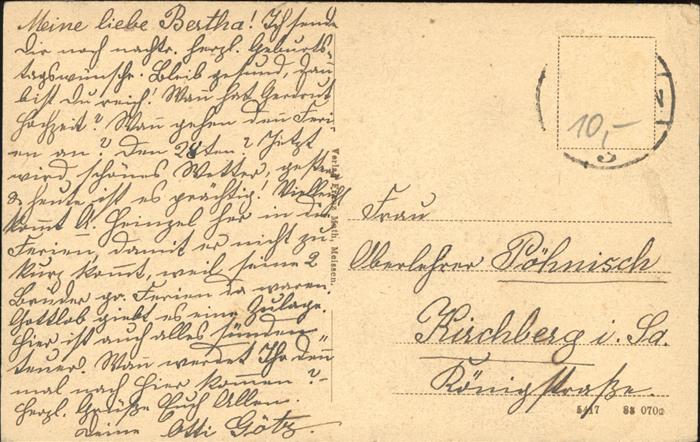 Meine liebe Bertha! Ich sende
Dir noch nachtr. herzl. Geburts-
tagswünsche. Bleib gesund, dann
bist du reich! Wann hat Gertrud
Hochzeit? Wann gehen den Feri-
en an? Den 28ten? Jetzt
wird schönes Wetter, gestern
& heute ist es prächtig! Vielleicht
kommt A. Heinzel her in die
Ferien, damit er nicht zu
kurz kommt, weil seine 2
Brüder ga. Ferien da waren.
Gottlob giebt es eine Zulage.
Hier ist auch alles sünden
teuer. Wann werdet Ihr den̄
mal nach hier kommen? -
Herzl. Grüße Euch Allen.
Deine Otti Götz.
Meissen.
10,-
Frau
Oberlehrer Pöhnisch
Kirchberg i. Sa.
Königstraße.
5417 88 070a